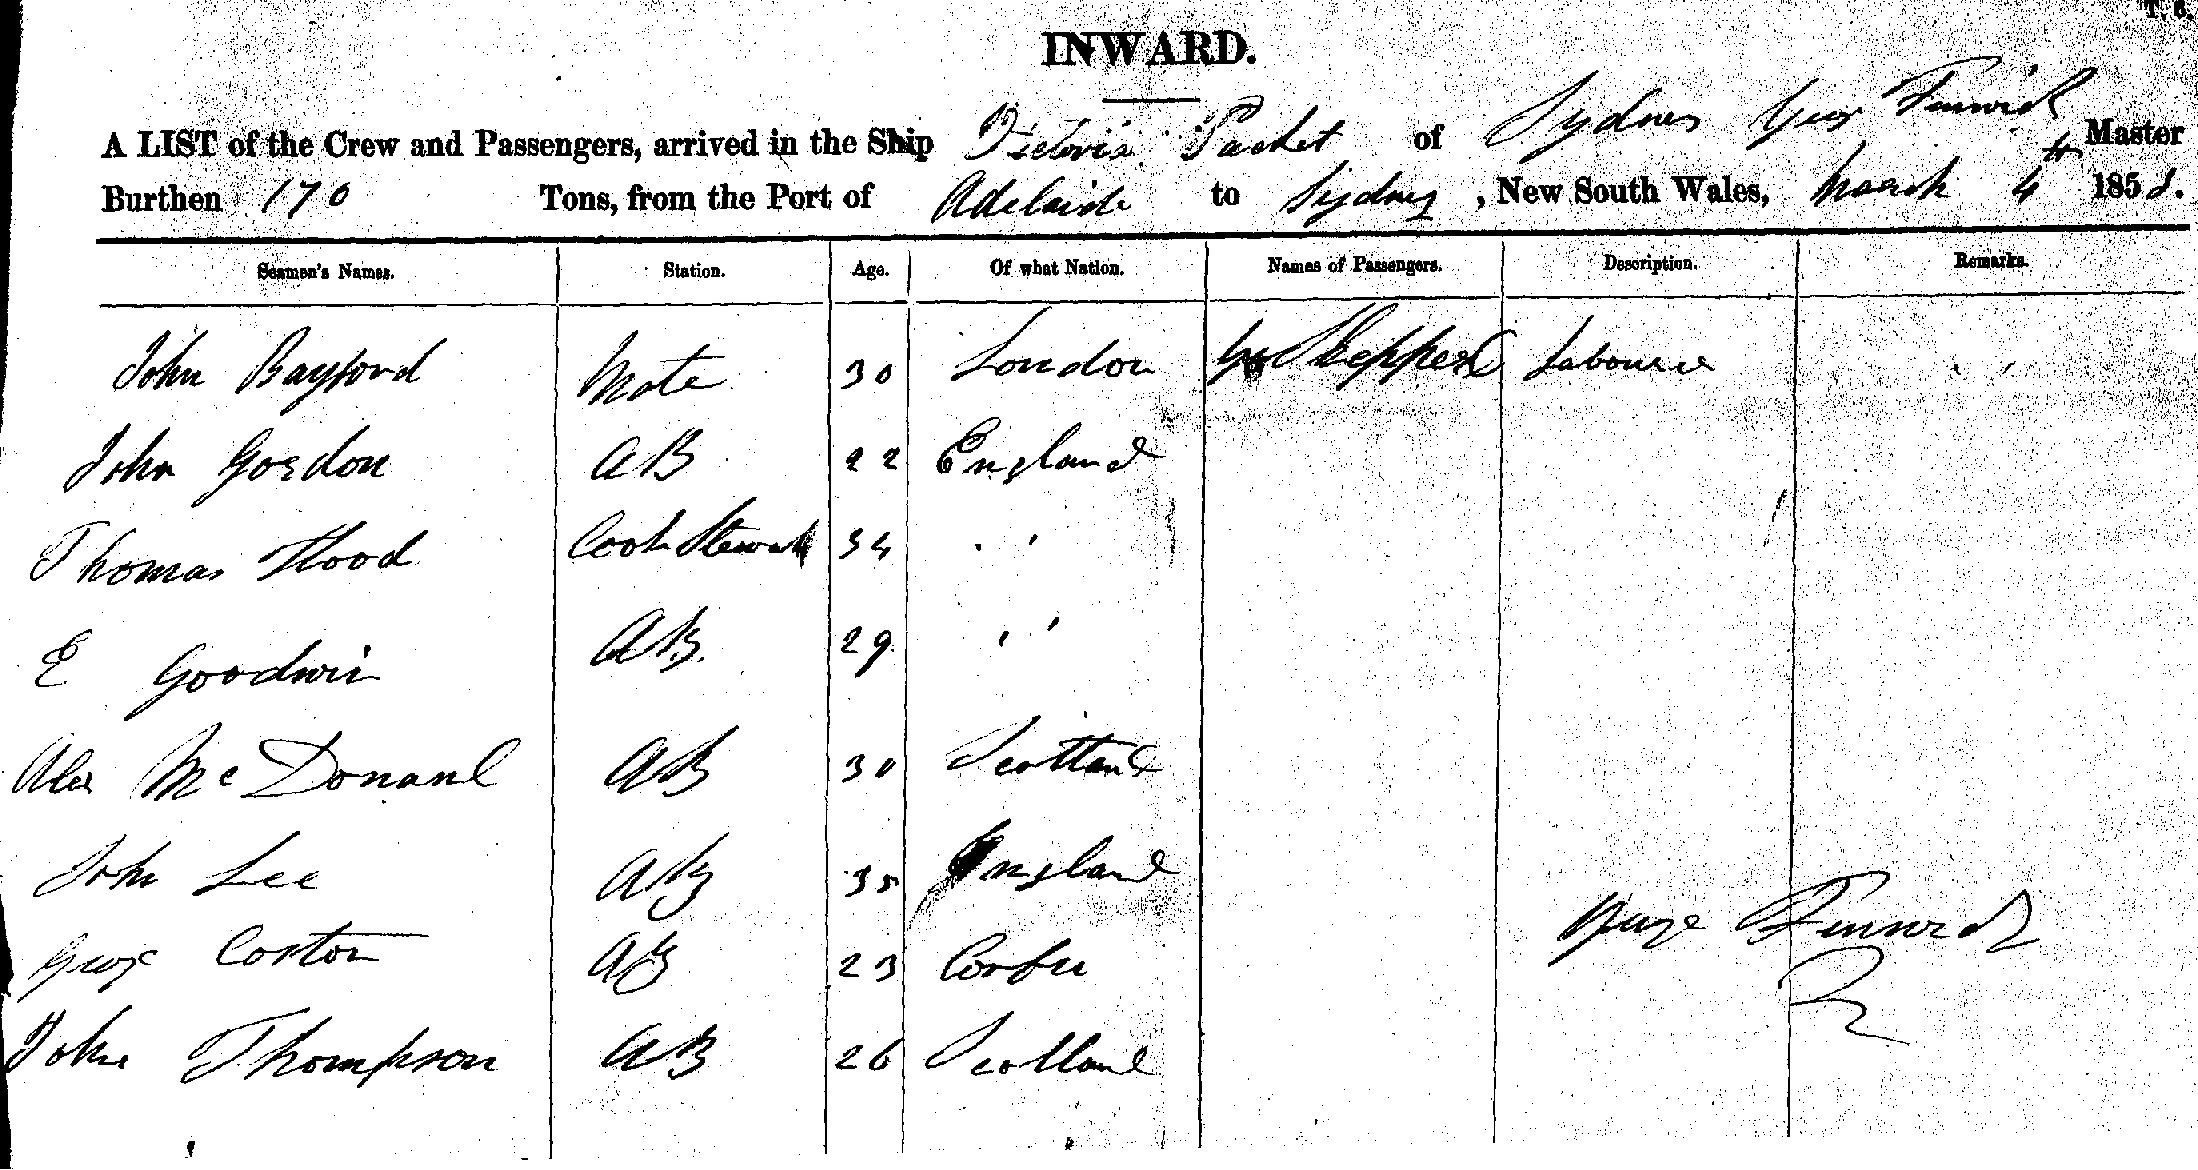 T. 6.
INWARD.
A LIST of the Crew and Passengers, arrived in the Ship Victoria Packet of Sydney Geog Fenwick Master
Burthen 170 Tons, from the Port of Adelaide to Sydney, New South Wales, March 4th 1858.
Seamen's Names. Station. Age. Of what Nation. Names of Passengers. Description. Remarks.
John Bayford Mate 30 London Sheppard Labourer
John Gordon AB 22 England
Thomas Hood Cook Steward 34 " "
E Goodwin AB. 29 " "
Alex McDonanl AB 30 Scotland
John Lee AB 35 England
George Coston AB 23 Corfu
George Fenwick
John Thompson AB 26 Scotland